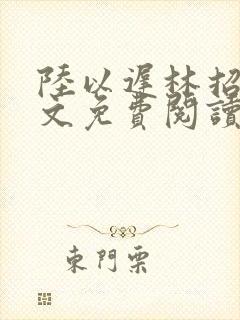 陸以遲林招
文免費閱讀
東門栗